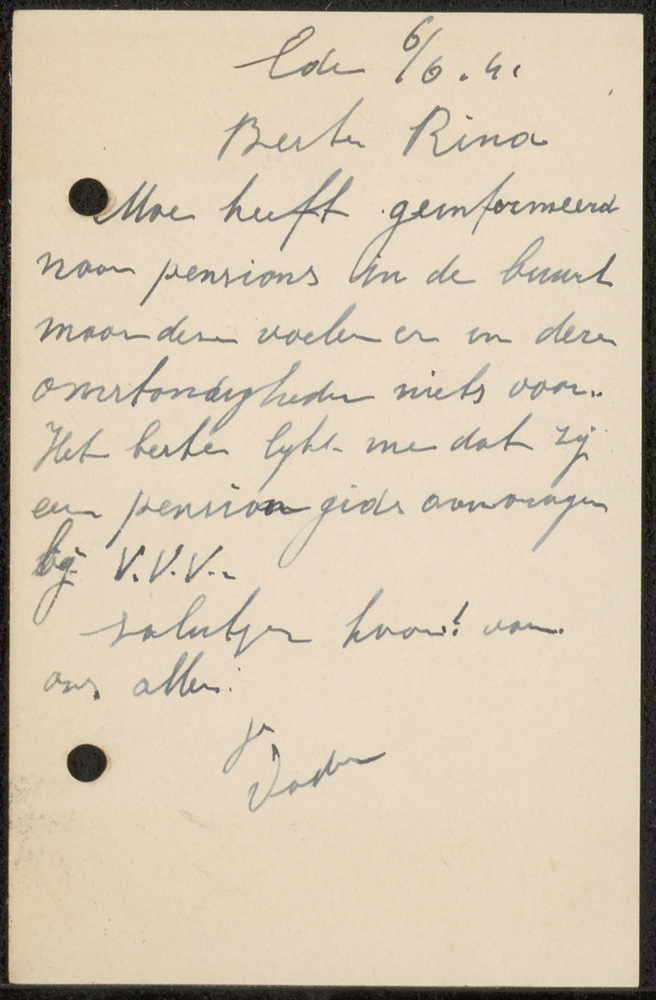 Ede 6/6.41
Beste Rina
Moe heeft geinformeerd
naar pensions in de buurt
maar deze voelen er in deze
omstandigheden niets voor.
Het beste lijkt me dat zij
een pension gids aanvragen
bij V.V.V.
salutjes hoor! van
ons allen.
Je
Vader